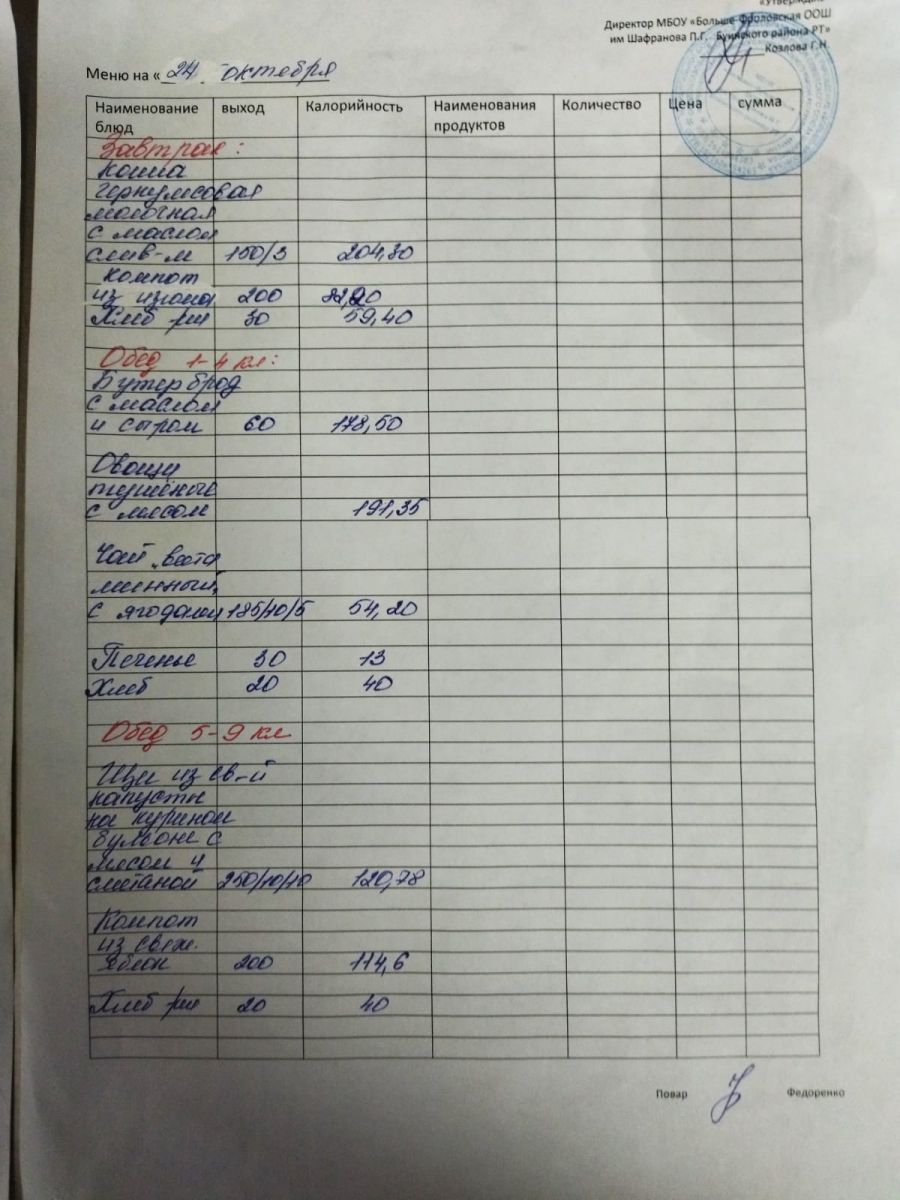 «Утвержд
Директор МБОУ «Больше-Фроловская ООШ
им Шафранова П.Г. Буинского района РТ»
Козлова Г.Н.
Меню на « 24 . октября
Наименование блюд выход Калорийность Наименования продуктов Количество Цена сумма
Завтрак:
Каша
геркулесовая
молочная
с маслом
слив-м 150/3 204,30
Компот
из изюма 200
Хлеб рж 30 59,40
Обед 1-4 кл:
Бутерброд
с маслом
и сыром 60 178,50
Овощи
тушёные
с мясом 191,35
Чай „вита
минный„
с ягодами 185/10/5 54,20
Печенье 30 13
Хлеб 20 40
Обед 5-9 кл
Щи из св-й
капусты
на курином
бульоне с
мясом и
сметаной 250/10/10 120,78
Компот
из свеж.
яблок 200 114,6
Хлеб рж 20 40
Повар Федоренко